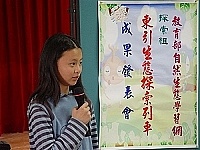 教育部自然生態學習網
探索組
東引生態探索列車
成果發表會